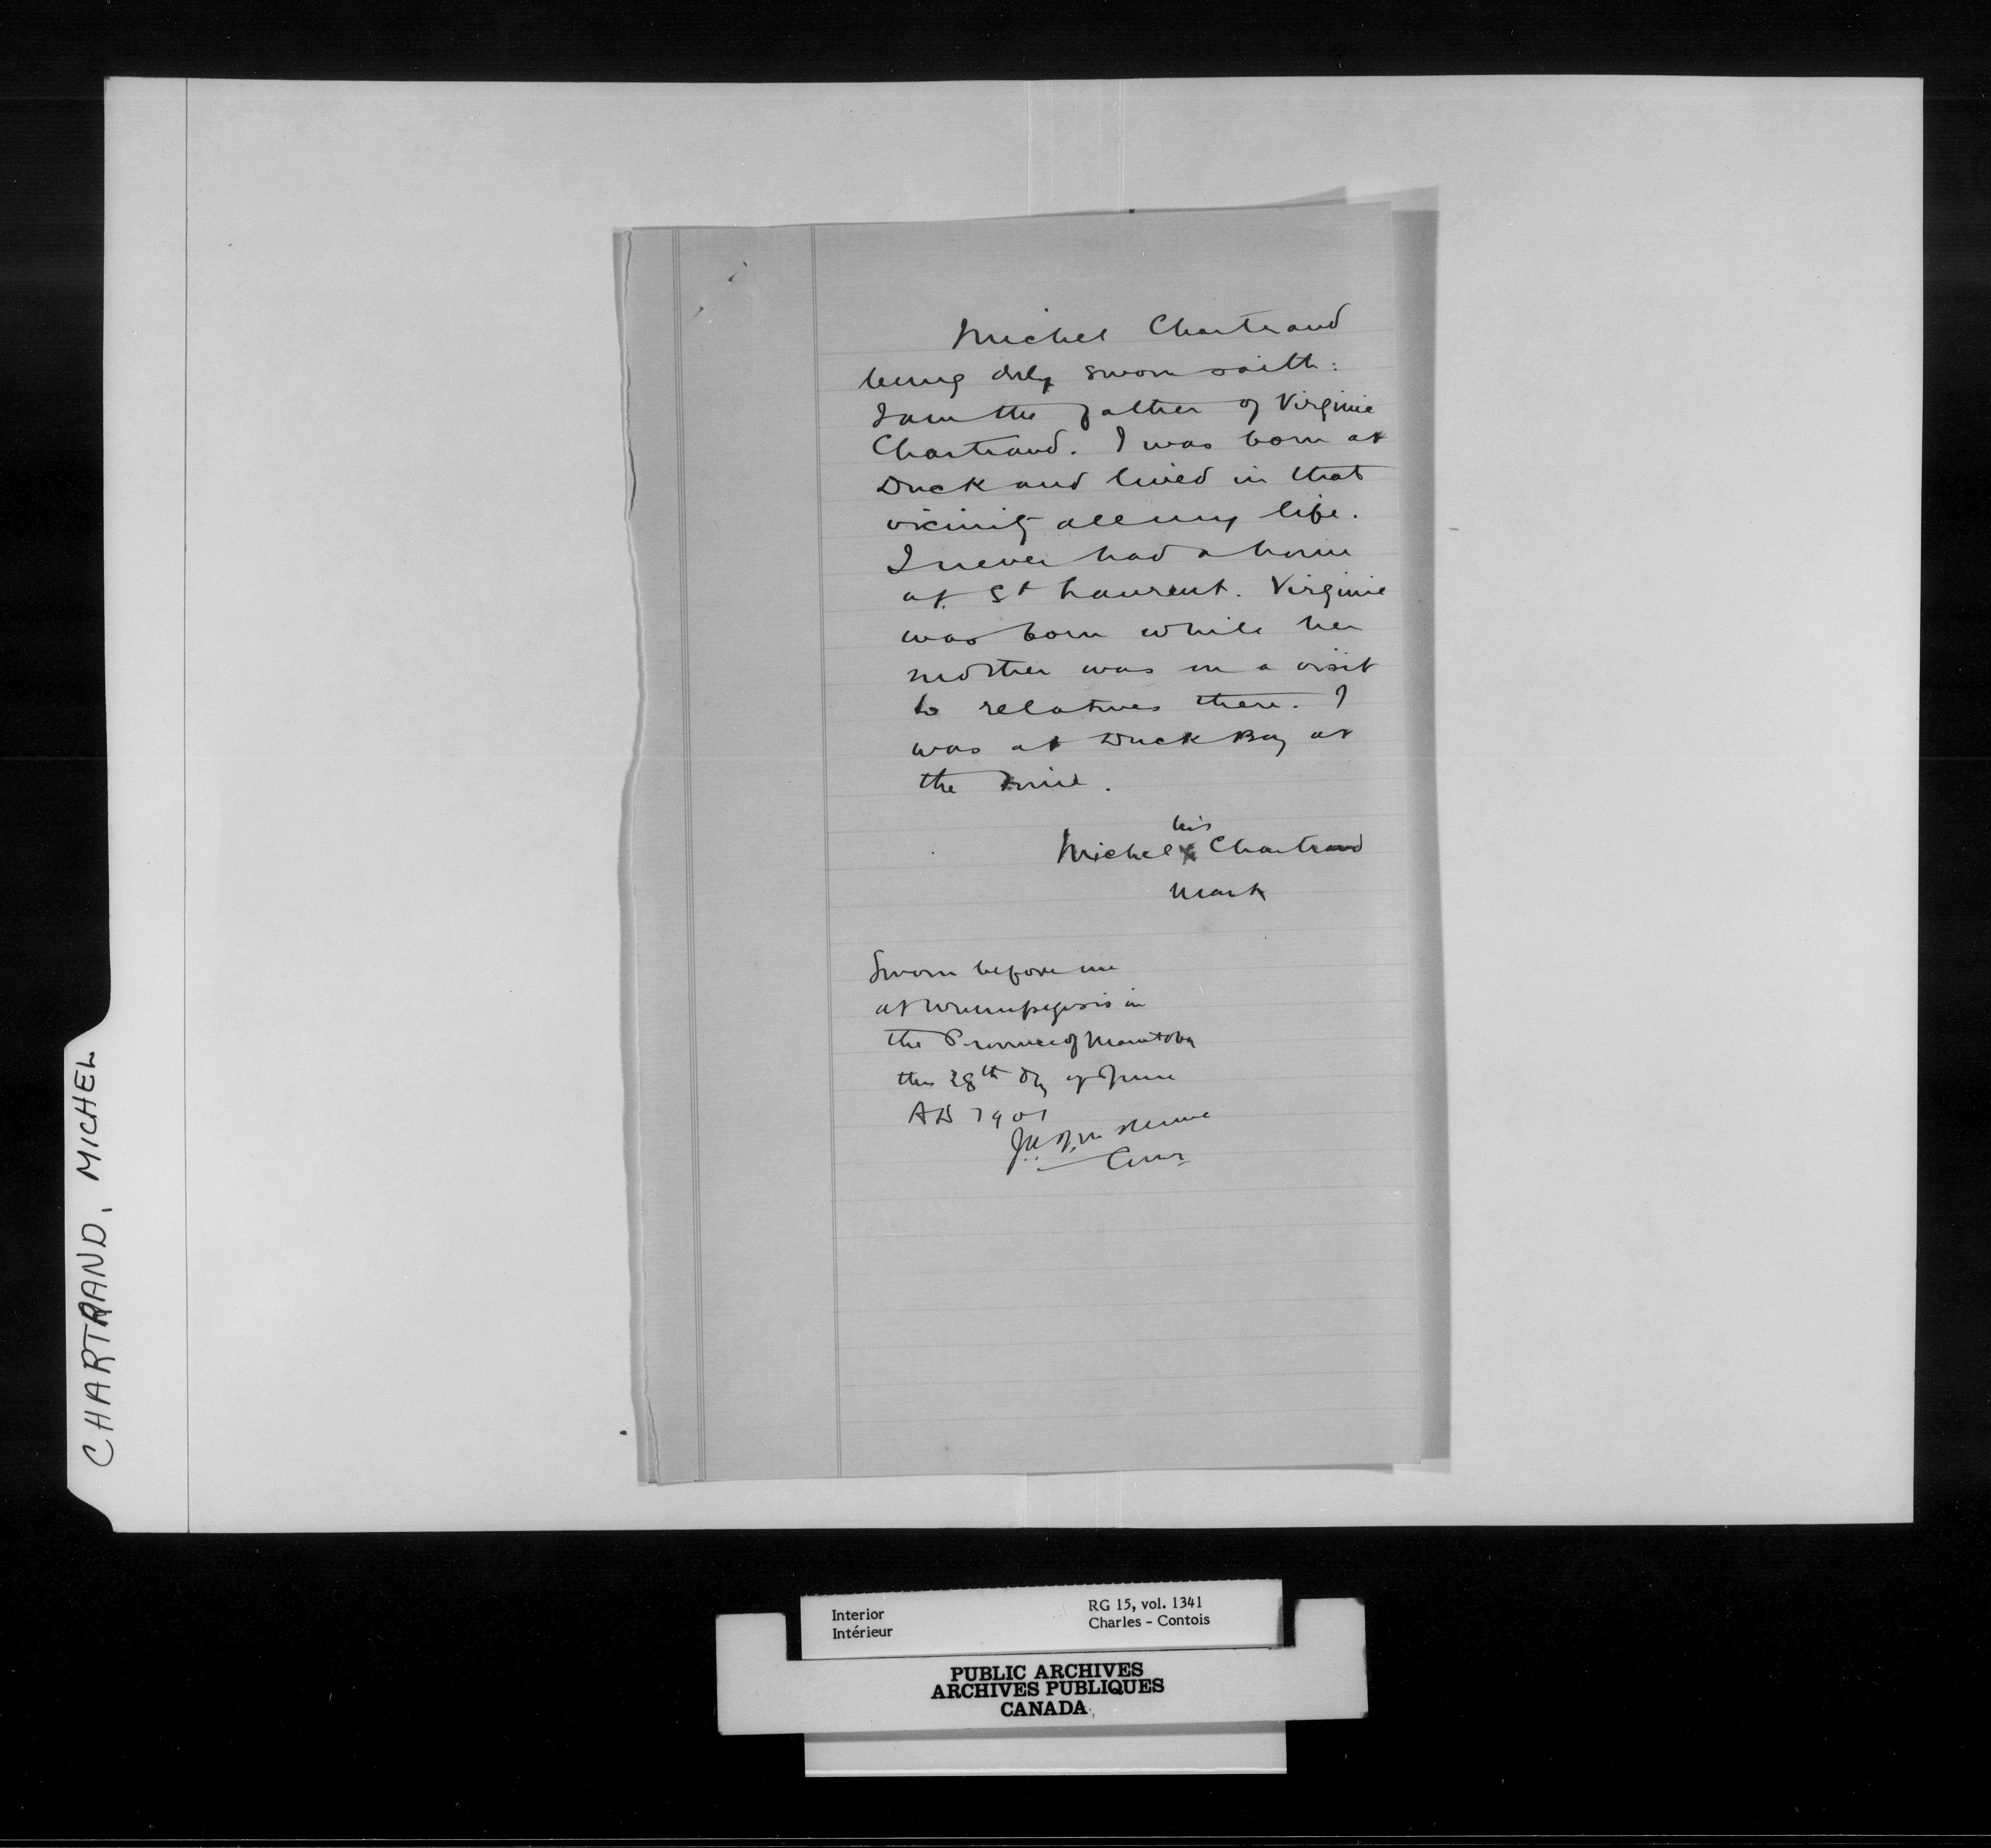 Michel Chartrand
being duly sworn saith:
I am the father of Virginie
Chartrand. I was born at
Duck and lived in that
vicinity all my life.
I never had a home
at St Laurent. Virginie
was born while her
mother was on a visit
to relatives there. I
was at Duck Bay at
the time.
his
Michel X Chartrand
mark
Sworn before me
at Winnipegosis in
the Province of Manitoba
this 28th day of June
AD 1901
CHARTRAND, MICHEL
Interior RG 15, vol. 1341
Intérieur Charles - Contois
PUBLIC ARCHIVES
ARCHIVES PUBLIQUES
CANADA